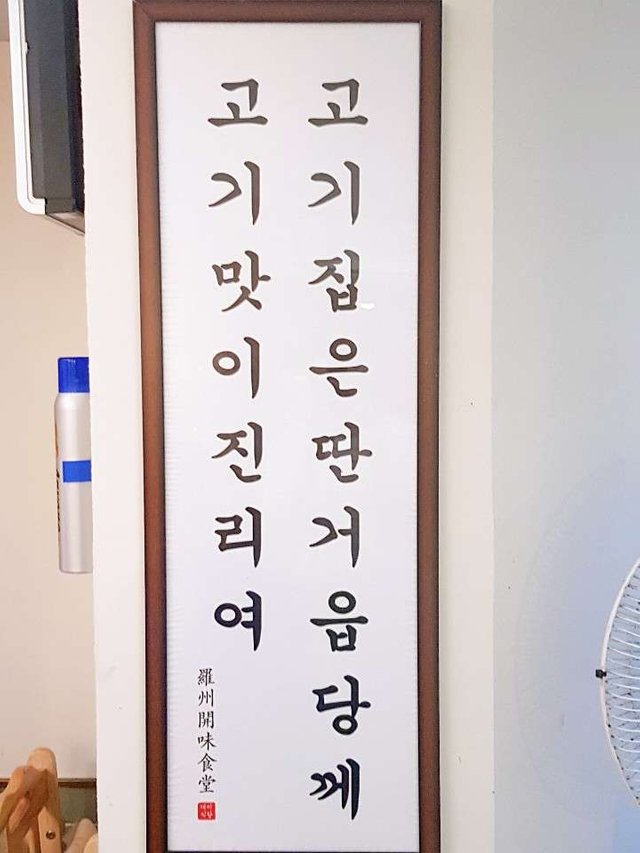 고기집은딴거읍당께
고기맛이진리여
羅州開味食堂